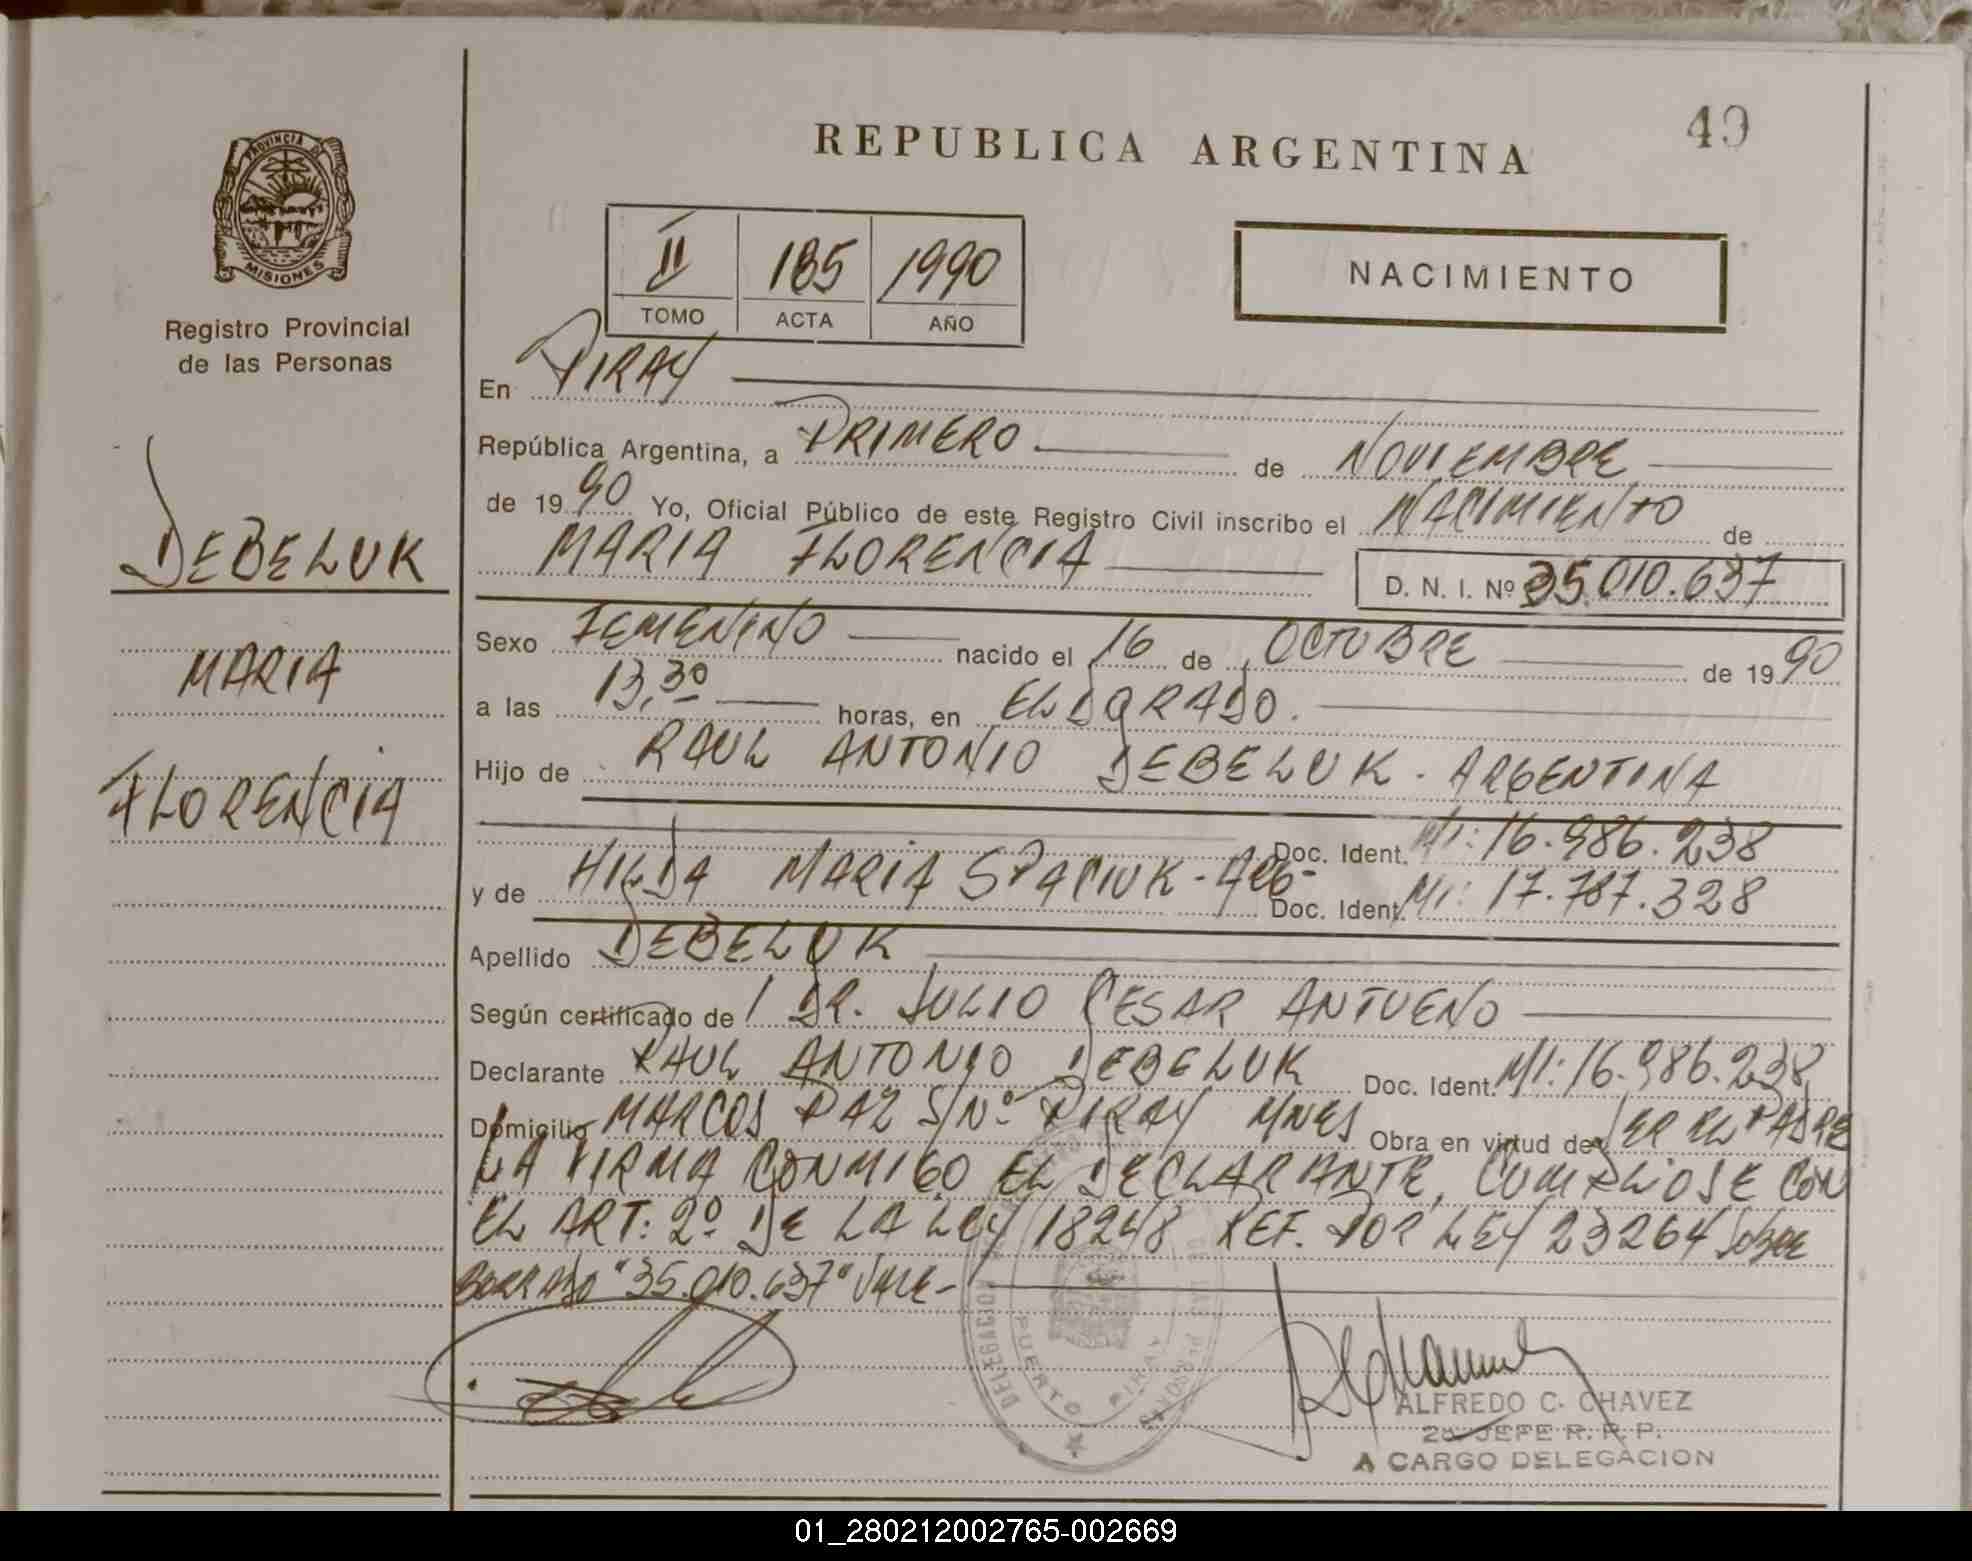 REPUBLICA ARGENTINA
49
PROVINCIA DE
MISIONES
Registro Provincial
de las Personas
II 185 1990
TOMO ACTA AÑO
NACIMIENTO
DEBELUK
MARIA
FLORENCIA
En PIRAY
República Argentina, a PRIMERO de NOVIEMBRE
de 1990 Yo, Oficial Público de este Registro Civil inscribo el NACIMIENTO de
MARIA FLORENCIA D. N. I. Nº 35.010.637
Sexo FEMENINO nacido el 16 de OCTUBRE de 1990
a las 13,30 horas, en ELDORADO.
Hijo de RAUL ANTONIO DEBELUK - ARGENTINA
Doc. Ident. MI: 16.986.238
y de HILDA MARIA SPACIUK - ARG- Doc. Ident. MI: 17.787.328
Apellido DEBELUK
Según certificado de DR. JULIO CESAR ANTUENO
Declarante RAUL ANTONIO DEBELUK Doc. Ident. MI: 16.986.238
Domicilio MARCOS PAZ S/Nº PIRAY MNES Obra en virtud de SER EL PADRE
LA FIRMA CONMIGO EL DECLARANTE, CUMPLIOSE CON
EL ART: 2º DE LA LEY 18248 REF. POR LEY 23264 SOBRE
BORRADO "35.010.637" VALE-
DELEGACION
PUERTO PIRAY
DE LAS PERSONAS
ALFREDO C. CHAVEZ
2º JEFE R. P. P.
A CARGO DELEGACION
01_280212002765-002669